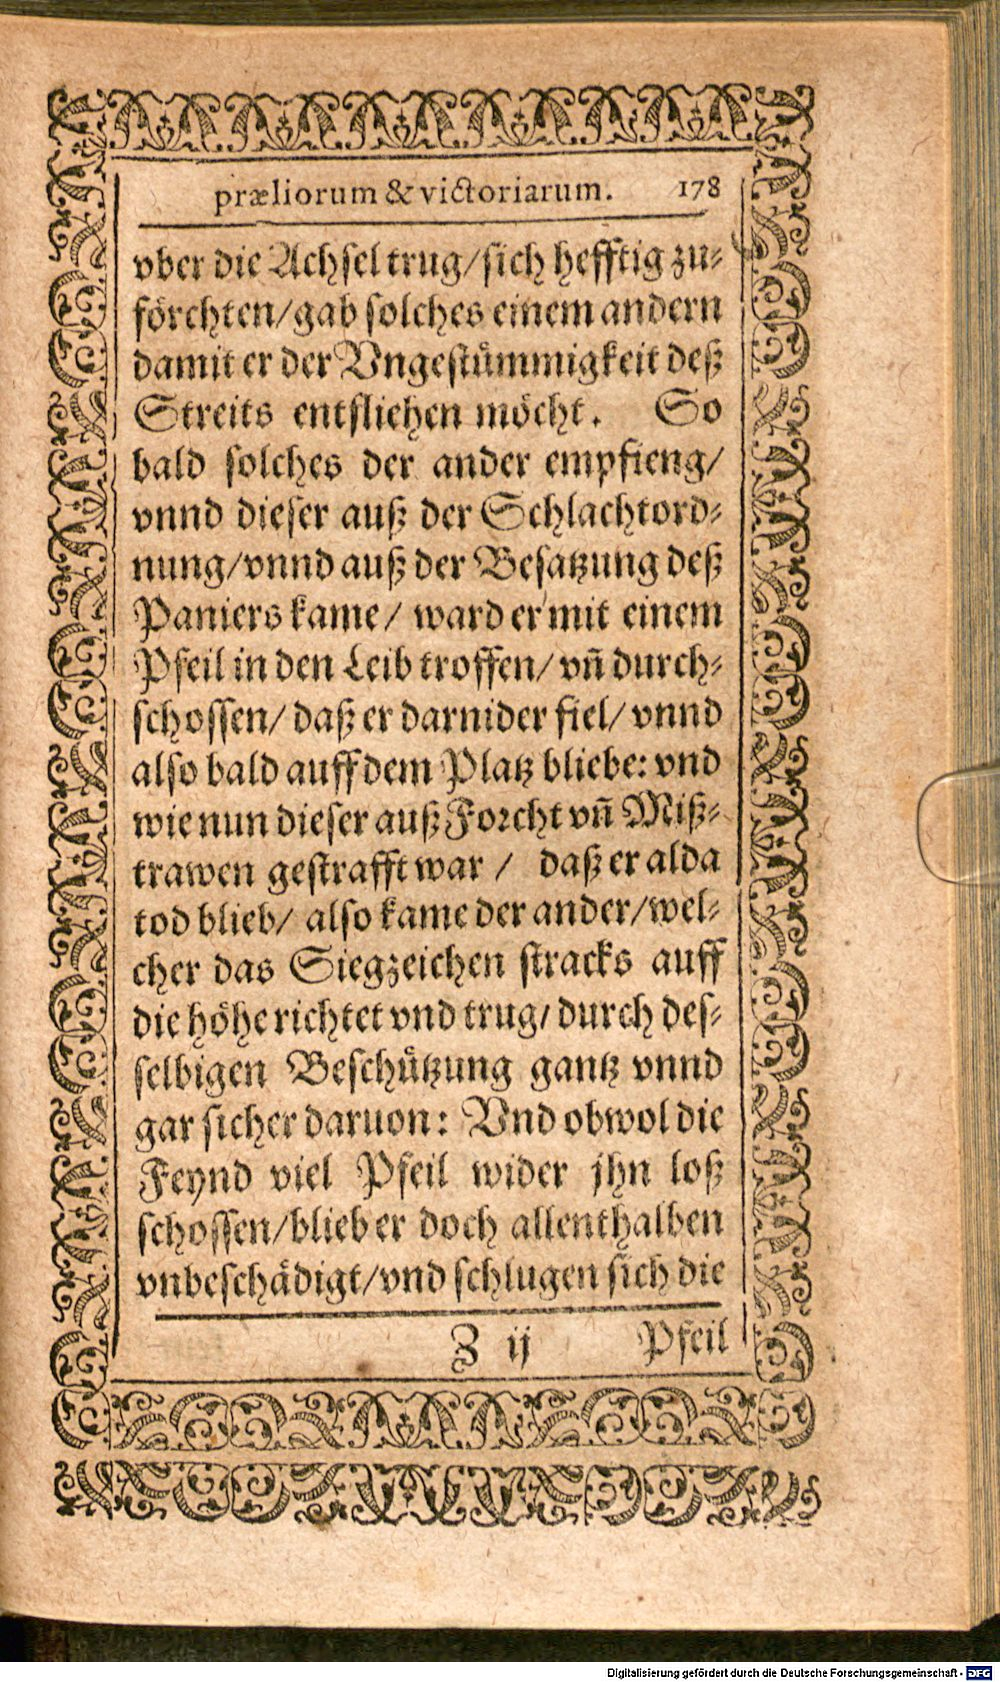 præliorum & victoriarum. 178
vber die Achsel trug/sich hefftig zu-
förchten/gab solches einem andern
damit er der Vngestümmigkeit deß
Streits entfliehen möcht. So
bald solches der ander empfieng/
vnnd dieser auß der Schlachtord-
nung/vnnd auß der Besatzung deß
Paniers kame/ ward er mit einem
Pfeil in den Leib troffen/ vn̄ durch-
schossen/ daß er darnider fiel/ vnnd
also bald auff dem Platz bliebe: vnd
wie nun dieser auß Forcht vn̄ Miß-
trawen gestrafft war / daß er alda
tod blieb/ also kame der ander/wel-
cher das Siegzeichen stracks auff
die höhe richtet vnd trug/ durch des-
selbigen Beschützung gantz vnnd
gar sicher daruon: Vnd obwol die
Feynd viel Pfeil wider jhn loß
schossen/blieb er doch allenthalben
vnbeschädigt/vnd schlugen sich die
Z ij Pfeil
Digitalisierung gefördert durch die Deutsche Forschungsgemeinschaft - DFG